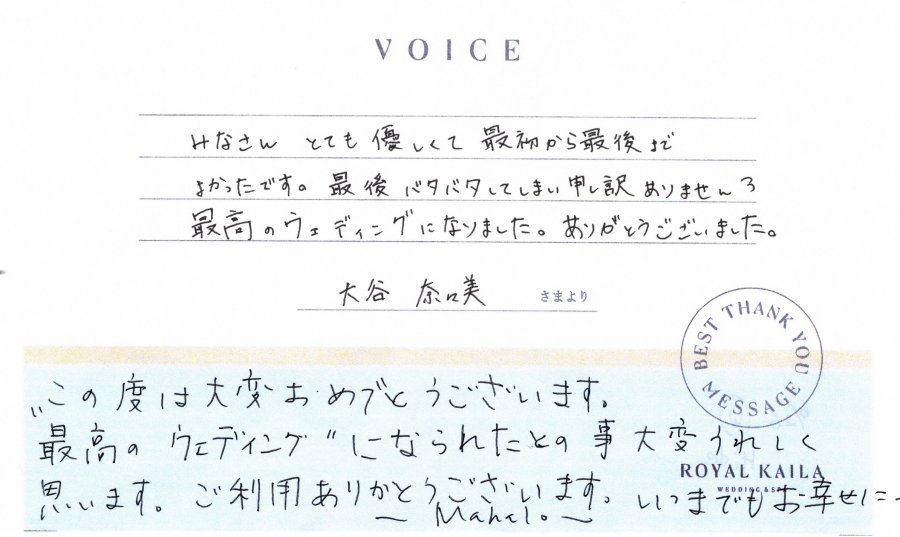 VOICE
みなさん とても 優しくて 最初から最後まで
よかったです。最後 バタバタしてしまい 申し訳 ありません
最高のウェディングになりました。ありがとうございました。
大谷 奈々美 さまより
BEST THANK YOU MESSAGE
この度は大変おめでとうございます。
"最高の ウェディング"になられたとの事 大変うれしく
ROYAL KAILA
WEDDING & SPA
思います。ご利用ありがとうございます。いつまでもお幸せに
~ Mahalo ~